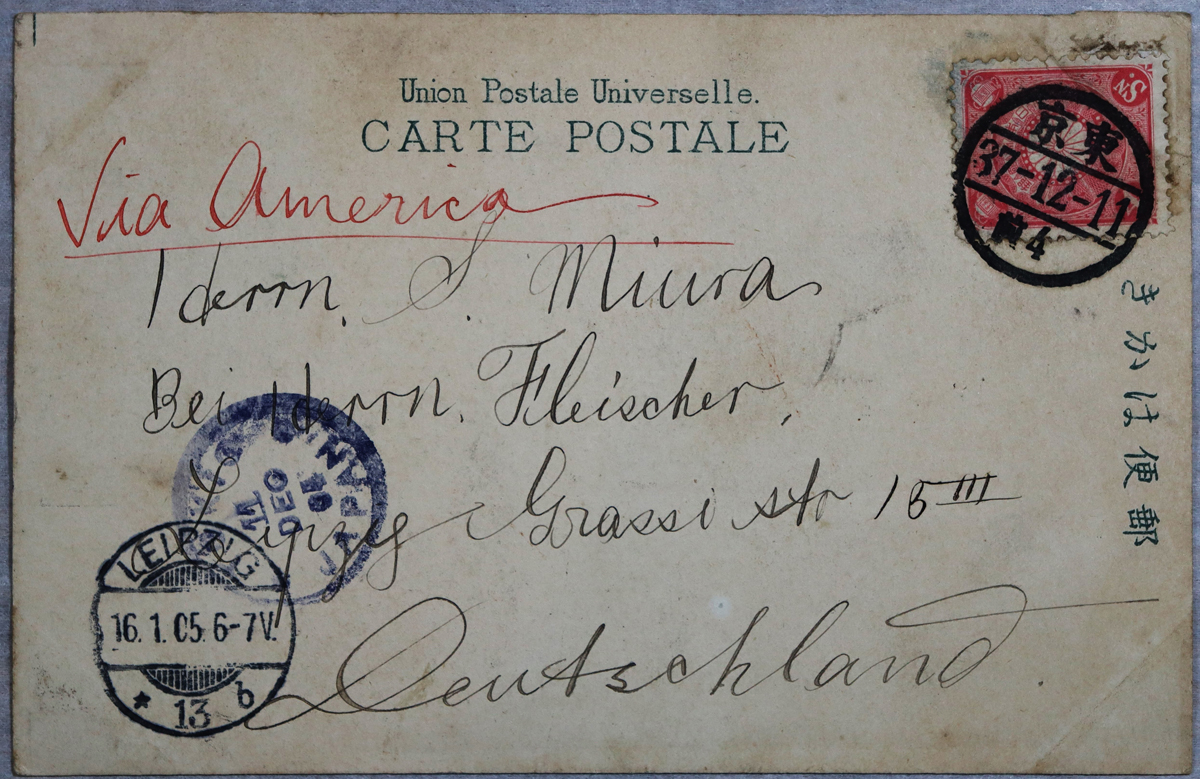 Union Postale Universelle.
CARTE POSTALE
Via America
Herrn. S. Miura
Bei Herrn. Fleischer,
Leipzig Grassi str 15 III
Deutschland.
東京
37-12-11
4
S.N
きかは便郵
JAPAN
11
DEC
04
LEIPZIG
16.1.05.6-7V.
* 13 b